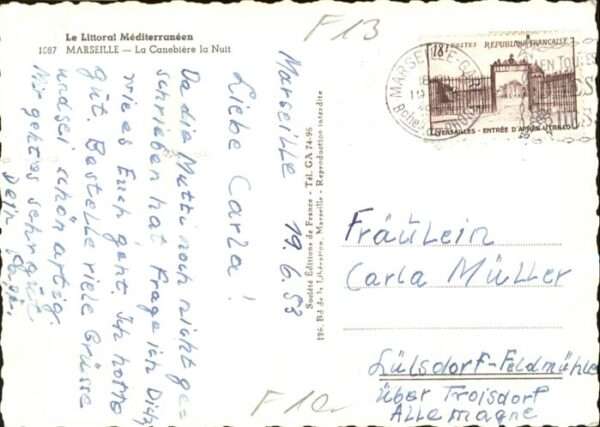 Le Littoral Méditerranéen
1087 MARSEILLE — La Canebière la Nuit
F13
18F POSTES REPUBLIQUE FRANÇAISE
VERSAILLES - ENTRÉE D'APRÈS UTRILLO
MARSEILLE-GARE
Marseille 19.6.53
Liebe Carla!
Da die Mutti noch nicht ge-
schrieben hat frage ich Dich
wie es Euch geht. Ich hoffe
gut. Bestelle viele Grüsse
und sei schön artig.
Mir geht es sehr gut
Dein
Société Editions de France - Tél. GA 74-95
196, Bd de la Libération, Marseille - Reproduction interdite
Fräulein
Carla Müller
Lülsdorf-Feldmühle
über Troisdorf
Allemagne
F10